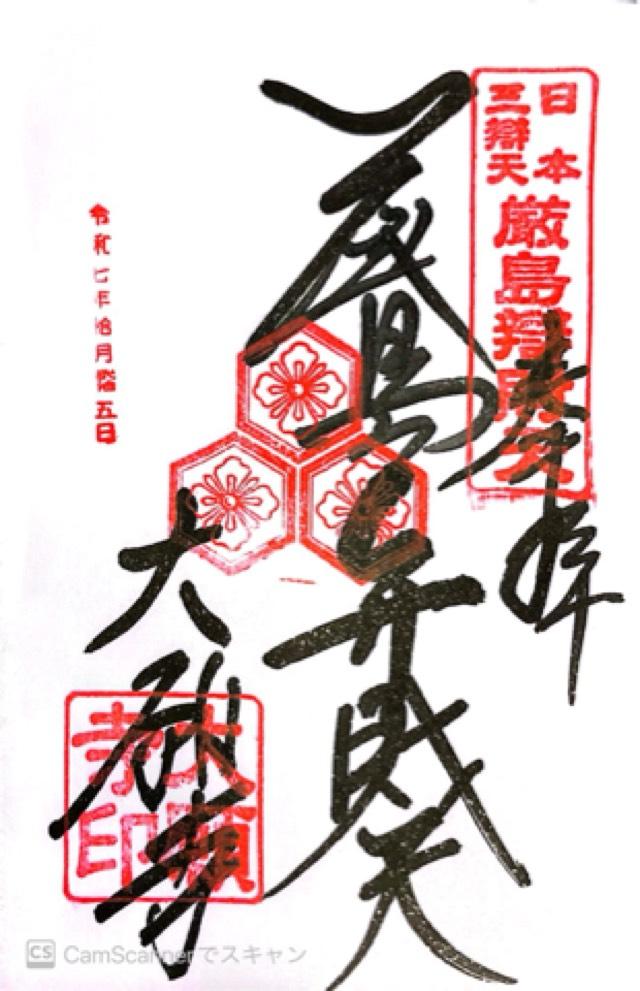 日本
三辯天
厳島辯財天
奉拝
厳島弁財天
大願寺
大願
寺印
令和七年拾月拾五日
CS CamScannerでスキャン